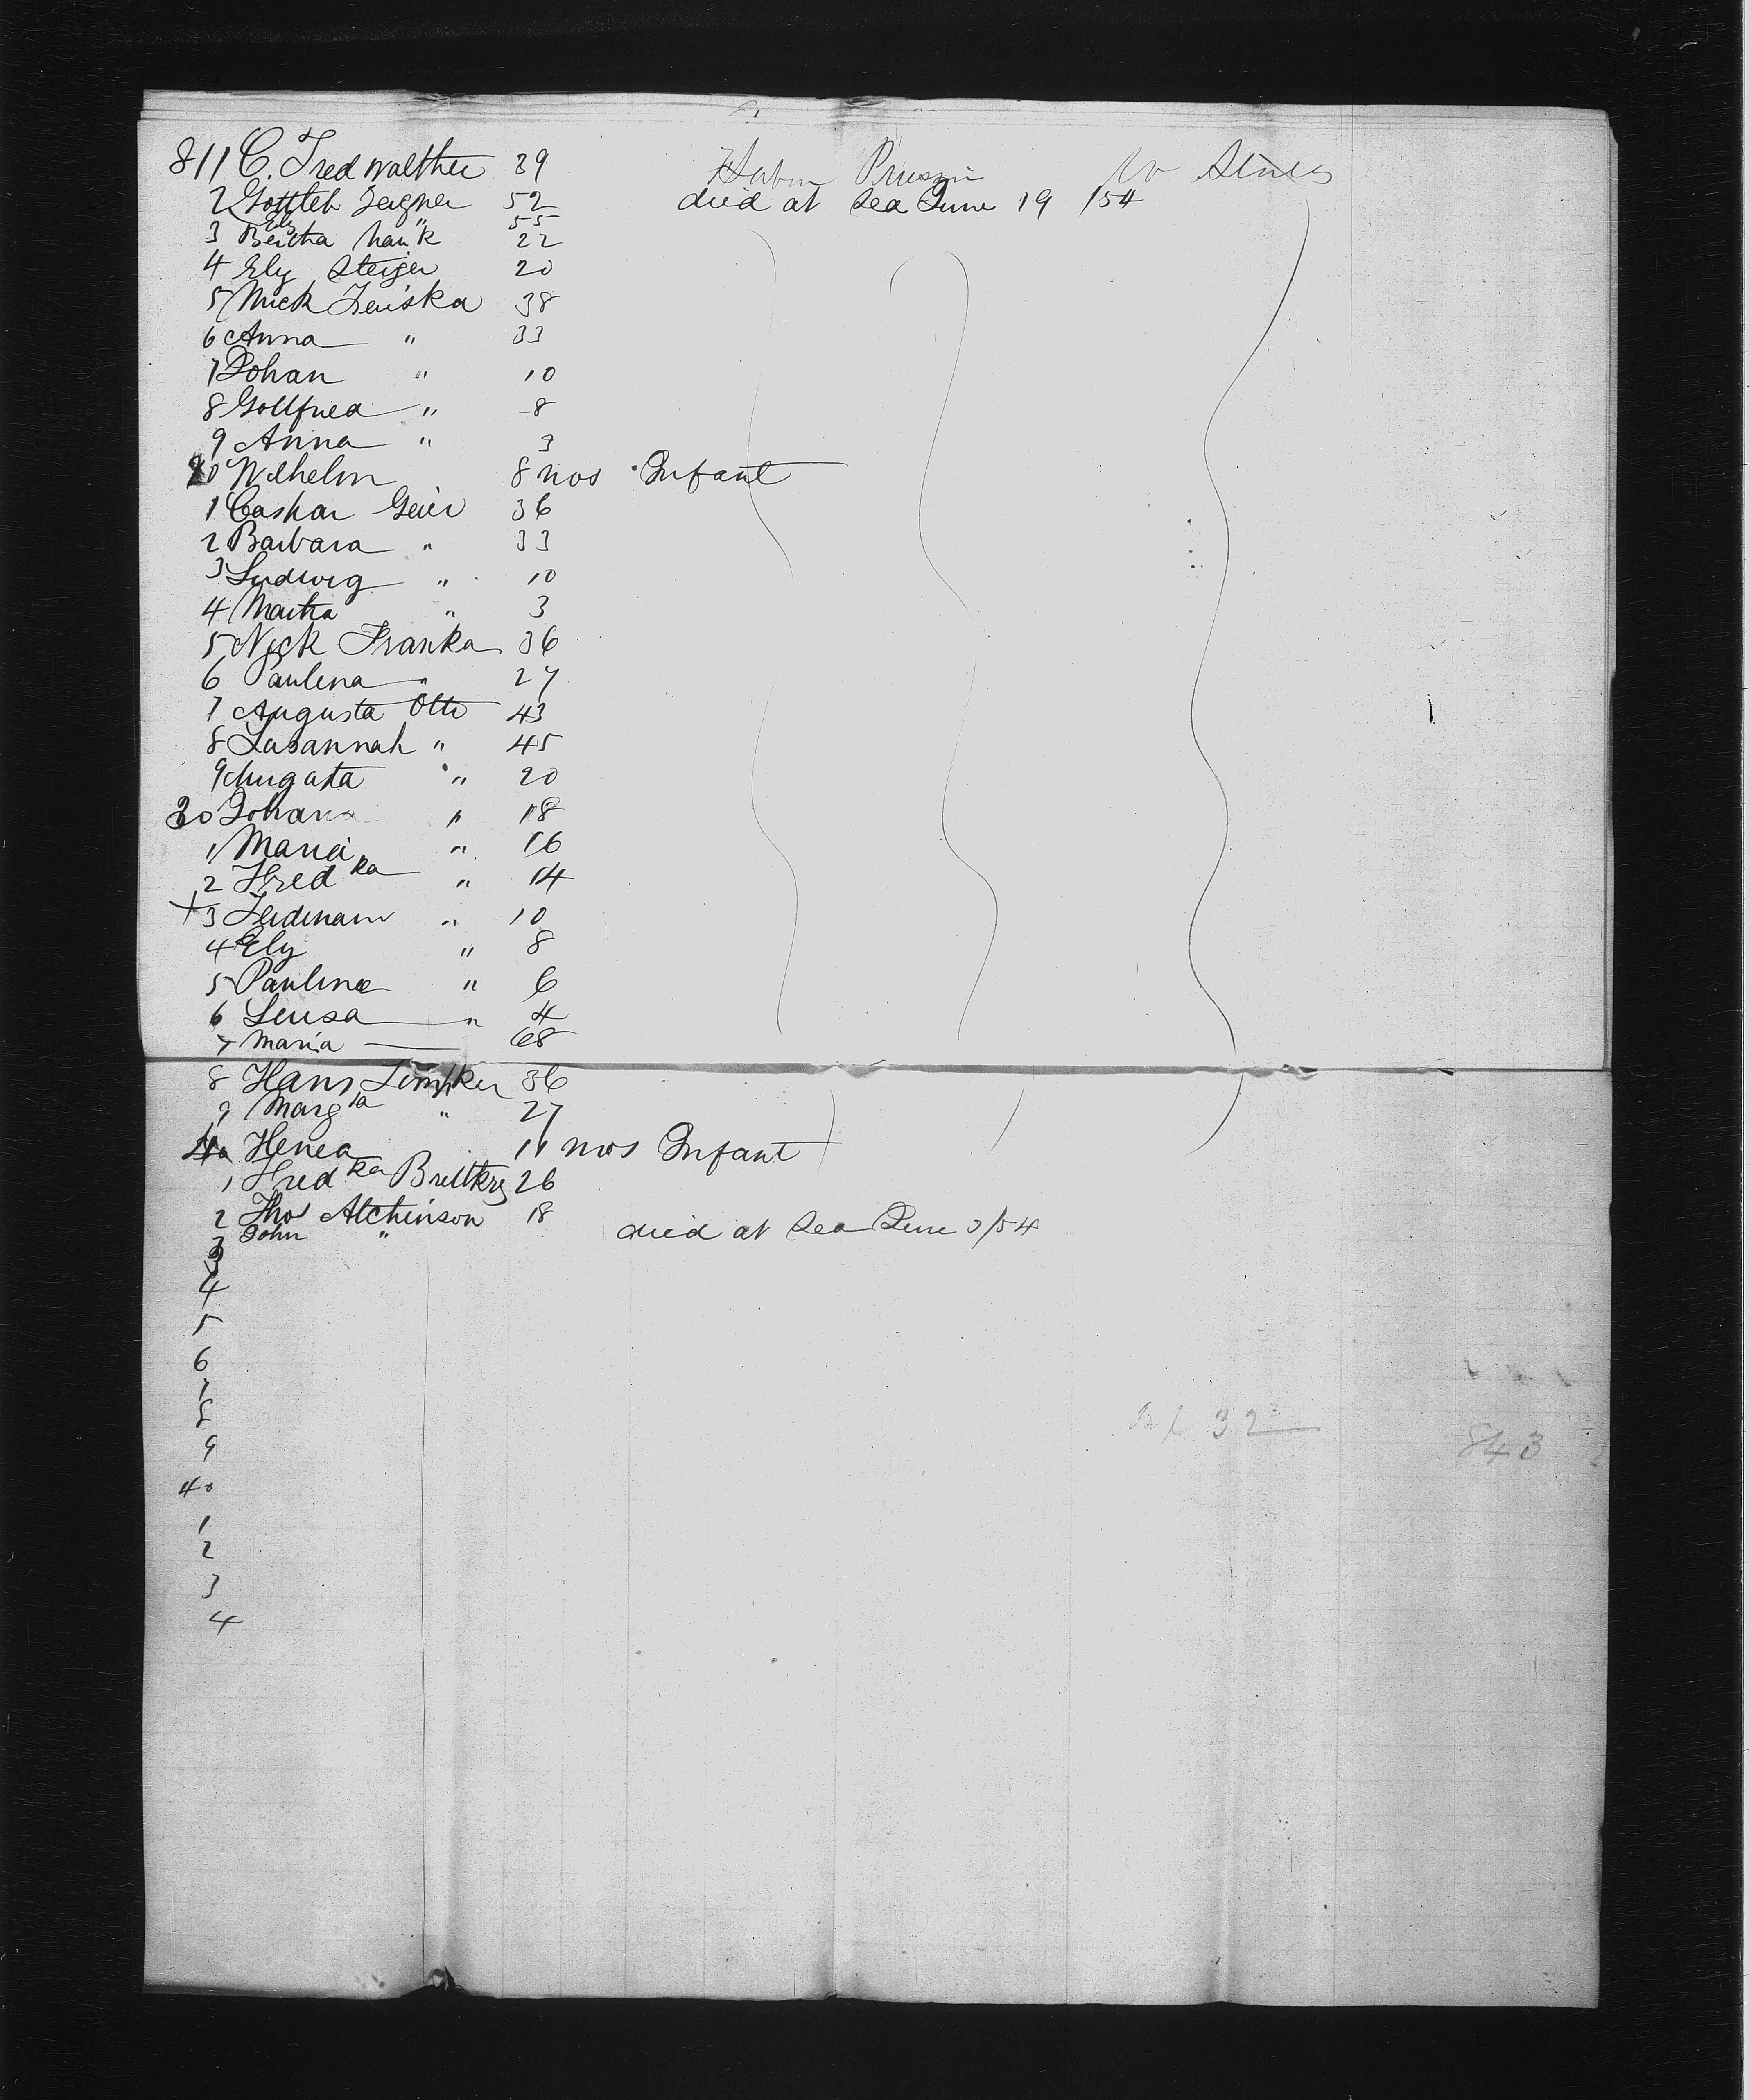 811 C. Fred Walther 39 Prussia U States
2 Gottleb Zeigner 52 died at Sea June 19 /54
Ely " 55
3 Bertha hank 22
4 Ely Steiger 20
5 Mick Zeiska 38
6 Anna " 33
7 Johan " 10
8 Gottfried " 8
9 Anna " 3
20 Wilhelm 8 mos Infant
1 Caspar Geier 36
2 Barbara " 33
3 Ludwig " 10
4 Martha " 3
5 Nick Franka 36
6 Paulena " 27
7 Augusta Otto 43
8 Susannah " 45
9 Augusta " 20
30 Johana " 18
1 Maria " 16
2 Fredka " 14
+3 Ferdinand " 10
4 Ely " 8
5 Paulina " 6
6 Leusa " 4
7 Maria — 68
8 Hans 36
9 Margta " 27
40 Henea 11 mos Infant
1 Fredka 26
2 Thos Atchinson 18
3 John " died at Sea June 3/54
3
4
5
6
7
8
9
40
1
2
3
4
32
843